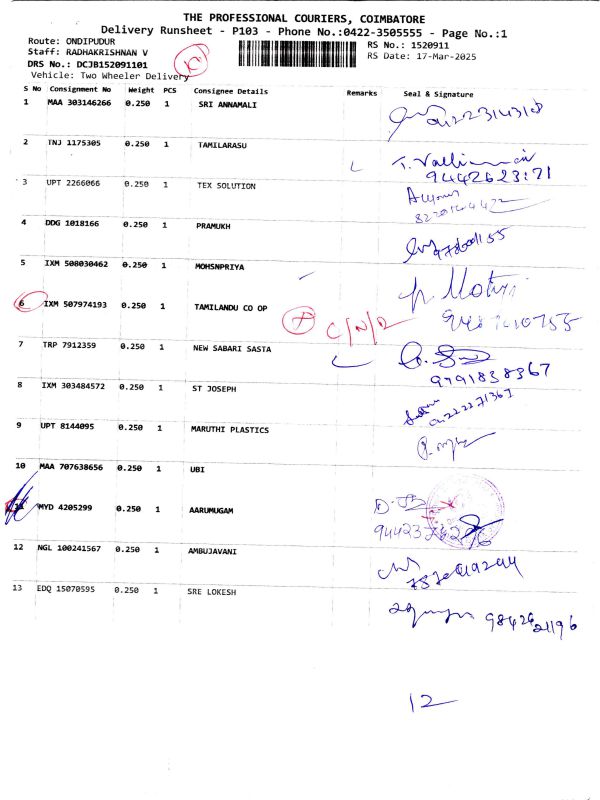 THE PROFESSIONAL COURIERS, COIMBATORE
Delivery Runsheet - P103 - Phone No.:0422-3505555 - Page No.:1
Route: ONDIPUDUR RS No.: 1520911
Staff: RADHAKRISHNAN V RS Date: 17-Mar-2025
DRS No.: DCJB152091101
Vehicle: Two Wheeler Delivery
S No Consignment No Weight PCS Consignee Details Remarks Seal & Signature
1 MAA 303146266 0.250 1 SRI ANNAMALI
2 TNJ 1175305 0.250 1 TAMILARASU
9442623171
3 UPT 2266066 0.250 1 TEX SOLUTION
4 DDG 1018166 0.250 1 PRAMUKH
5 IXM 508030462 0.250 1 MOHSNPRIYA
6 IXM 507974193 0.250 1 TAMILANDU CO OP C/N/R
7 TRP 7912359 0.250 1 NEW SABARI SASTA
9791838367
8 IXM 303484572 0.250 1 ST JOSEPH
9 UPT 8144095 0.250 1 MARUTHI PLASTICS
10 MAA 707638656 0.250 1 UBI
11 MYD 4205299 0.250 1 AARUMUGAM
12 NGL 100241567 0.250 1 AMBUJAVANI
13 EDQ 15070595 0.250 1 SRE LOKESH
12